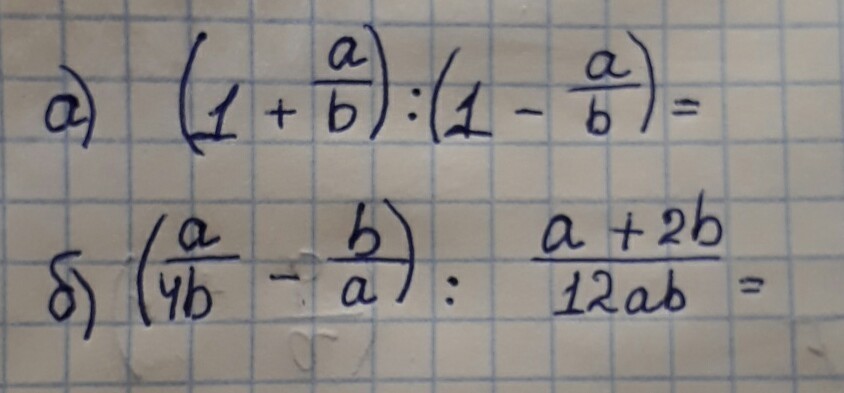 а) (1 + a/b) : (1 - a/b) =
б) (a/4b - b/a) : a + 2b/12ab =